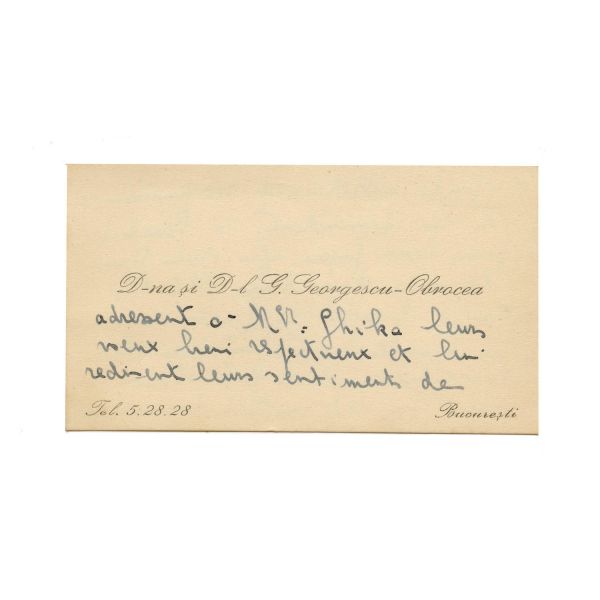 D-na și D-l G. Georgescu-Obrocea
adressent a Mgr. Ghika leurs
vœux bien respectueux et lui
redisent leurs sentiments de
Tel. 5.28.28
București